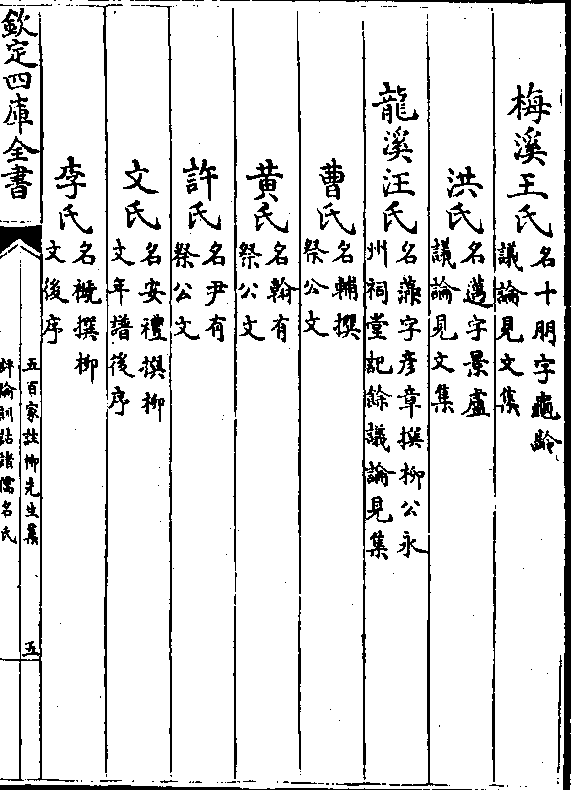 梅溪王氏名十朋字龜齡議論見文集
洪氏名邁字景盧議論見文集
龍溪汪氏名藻字彥章撰柳公永州祠堂記餘議論見集
曹氏名輔撰祭公文
黄氏名翰有祭公文
許氏名尹有祭公文
文氏名安禮撰柳文年譜後序
李氏名概撰柳文後序
欽定四庫全書
五百家註柳先生集
評論訓詁諸儒名氏
五